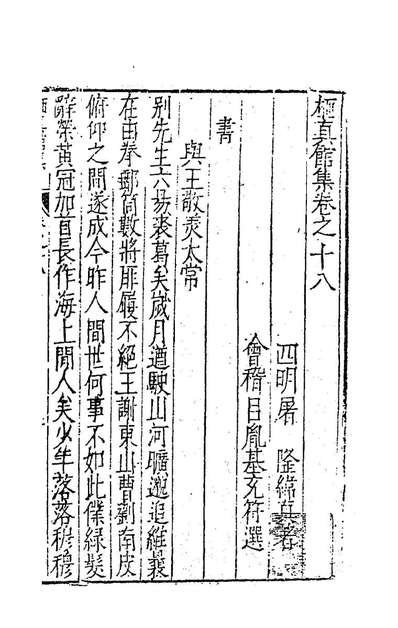 栖真館集卷之十八
四明屠　隆緯真著
會稽呂胤基玄符選
書
與王敬美太常
别先生六易裘葛矣歲月遒駛山河曠邈追維曩
在由拳郵筒數將屝屨不絕王謝東山曹劉南皮
俯仰之間遂成今昨人間世何事不如此僕綠髮
辭榮黃冠加首長作海上閒人矣少年落落穆穆